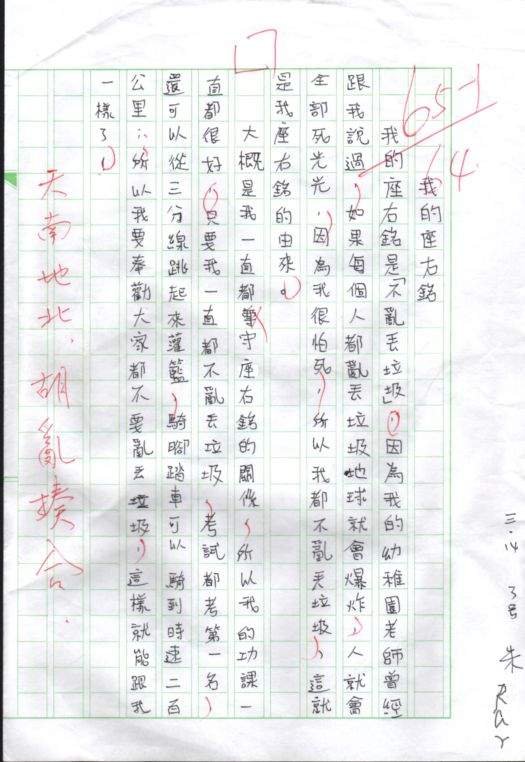 我的座右銘
我的座右銘是「不亂丟垃圾」,因為我的幼稚園老師曾經
跟我說過,如果每個人都亂丟垃圾地球就會爆炸,人就會
全部死光光,因為我很怕死,所以我都不亂丟垃圾,這就
是我座右銘的由來。
大概是我一直都遵守座右銘的關係,所以我的功課一
直都很好,只要我一直都不亂丟垃圾,考試都考第一名,
還可以從三分線跳起來灌籃,騎腳踏車可以騎到時速二百
公里,所以我要奉勸大家都不要亂丟垃圾,這樣就能跟我
一樣了!
65-1
64.
天南地北,胡亂揍合.
三.14 3号 朱